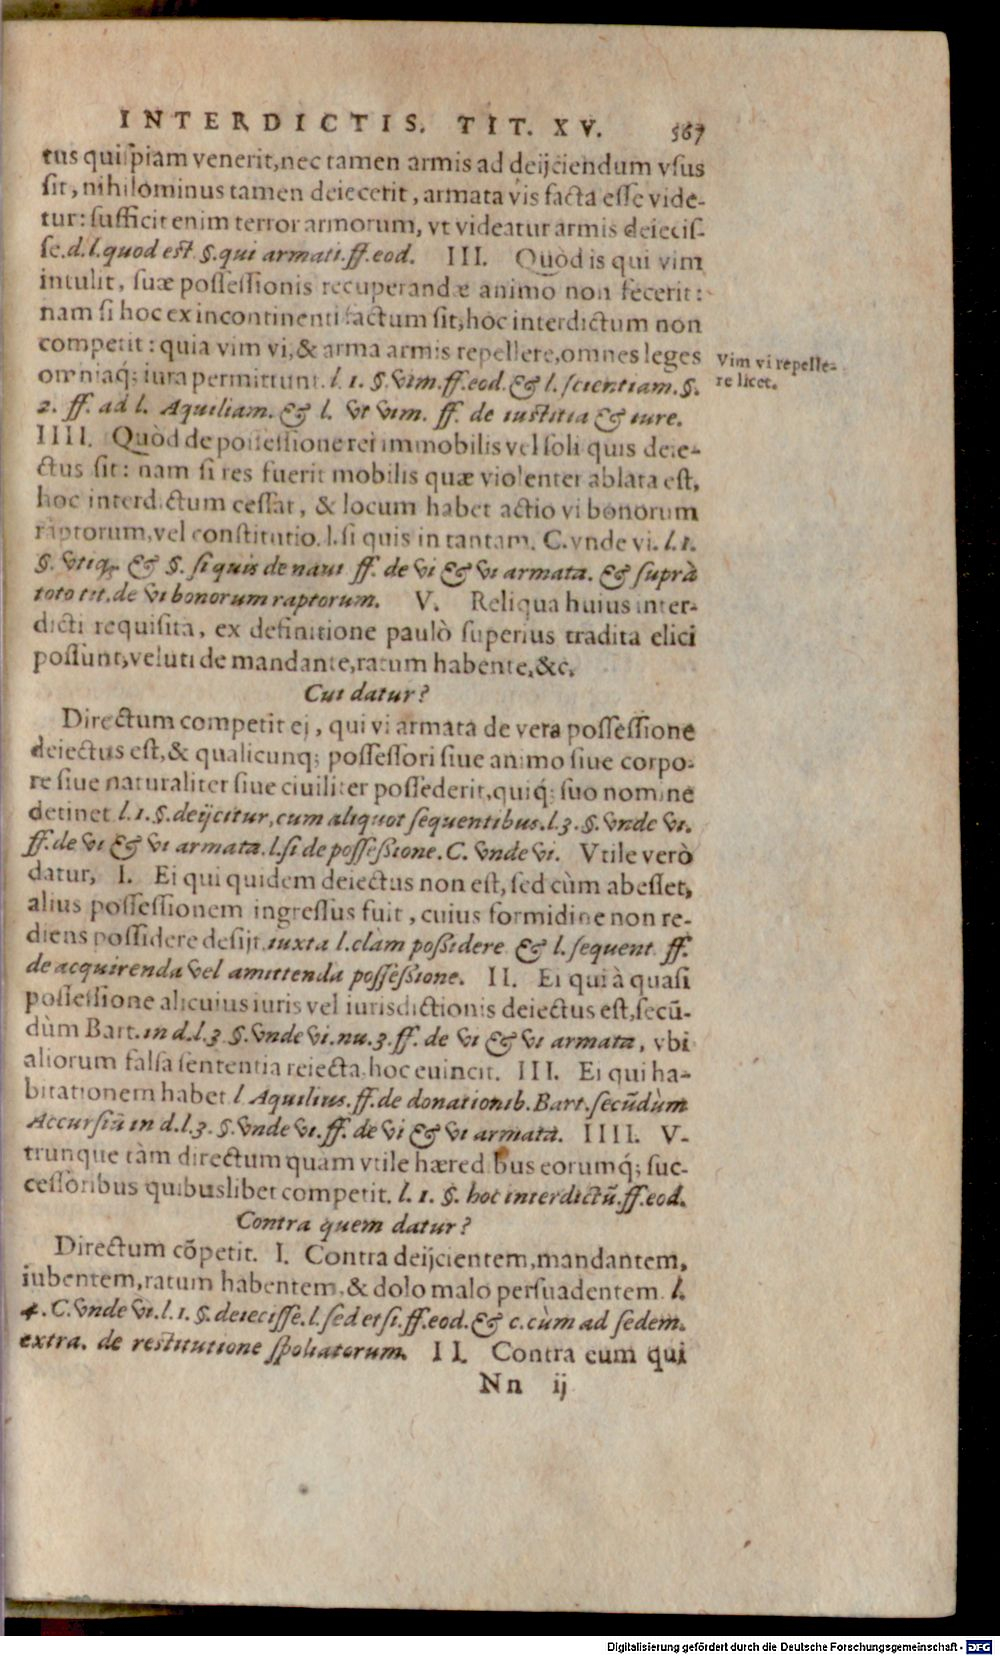 INTERDICTIS. TIT. XV. 567
tus quispiam venerit, nec tamen armis ad deijciendum vsus
sit, nihilominus tamen deiecerit, armata vis facta esse vide-
tur: sufficit enim terror armorum, vt videatur armis deiecis-
se. d. l. quod est §. qui armati. ff. eod. III. Quòd is qui vim
intulit, suæ possessionis recuperandæ animo non fecerit:
nam si hoc ex incontinenti factum sit, hoc interdictum non
competit: quia vim vi, & arma armis repellere, omnes leges
omniaq; iura permittunt. l. 1. §. vim. ff. eod. & l. scientiam. §.
Vim vi repelle-
re licet.
2. ff. ad l. Aquiliam. & l. vt vim. ff. de iustitia & iure.
IIII. Quòd de possessione rei immobilis vel soli quis deie-
ctus sit: nam si res fuerit mobilis quæ violenter ablata est,
hoc interdictum cessat, & locum habet actio vi bonorum
raptorum, vel constitutio. l. si quis in tantam. C. vnde vi. l. 1.
§. vtiq; & §. si quis de naui ff. de vi & vi armata. & suprà
toto tit. de vi bonorum raptorum. V. Reliqua huius inter-
dicti requisita, ex definitione paulò superius tradita elici
possunt, veluti de mandante, ratum habente, &c.
Cui datur?
Directum competit ei, qui vi armata de vera possessione
deiectus est, & qualicunq; possessori siue animo siue corpo-
re siue naturaliter siue ciuiliter possederit, quiq́; suo nomine
detinet l. 1. §. deijcitur, cum aliquot sequentibus. l. 3. §. vnde vi.
ff. de vi & vi armata. l. si de possessione. C. vnde vi. Vtile verò
datur, I. Ei qui quidem deiectus non est, sed cùm abesset,
alius possessionem ingressus fuit, cuius formidine non re-
diens possidere desijt iuxta l. clàm possidere & l. sequent ff.
de acquirenda vel amittenda possessione. II. Ei qui à quasi
possessione alicuius iuris vel iurisdictionis deiectus est, secũ-
dùm Bart. in d. l. 3. §. vnde vi. nu. 3. ff. de vi & vi armata, vbi
aliorum falsa sententia reiecta hoc euincit. III. Ei qui ha-
bitationem habet l. Aquilius. ff. de donationib. Bart. secũdùm
Accursiũ in d. l. 3. §. vnde vi. ff. de vi & vi armata. IIII. V-
trunque tàm directum quàm vtile hæredibus eorumq́; suc-
cessoribus quibuslibet competit. l. 1. §. hoc interdictũ. ff. eod.
Contra quem datur?
Directum cõpetit. I. Contra deijcientem, mandantem,
iubentem, ratum habentem, & dolo malo persuadentem. l.
4. C. vnde vi. l. 1. §. deiecisse. l. sed et si. ff. eod. & c. cùm ad sedem.
extra. de restitutione spoliatorum. II. Contra eum qui
Nn ij
Digitalisierung gefördert durch die Deutsche Forschungsgemeinschaft - DFG